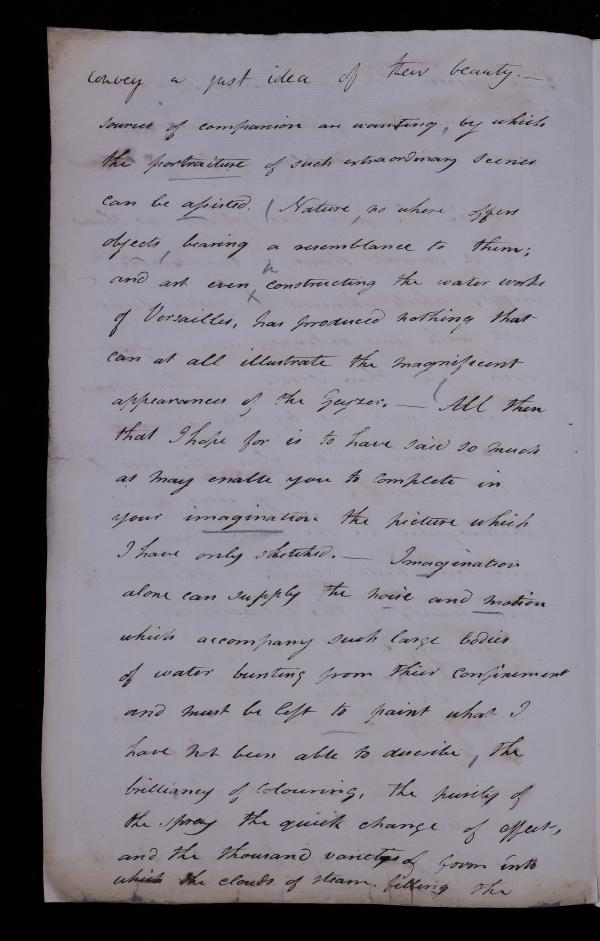 convey a just idea of their beauty.—
sources of comparison are wanting, by which
the portraiture of such extraordinary scenes
can be assisted. (Nature, no where, offers
objects, bearing a resemblance to them;
and art even, in constructing the water works
of Versailles, has produced nothing that
can at all illustrate the magnificent
appearances of the Geyzer. — (All then
that I hope for is to have said so much
as may enable you to complete in
your imagination the picture which
I have only sketched. — Imagination
alone can supply the noise and motion
which accompany such large bodies
of water bursting from their confinement
and must be left to paint what I
have not been able to describe, the
brilliancy of Colouring, the purity of
the spray the quick change of effect,
and the thousand varietys of form into
which the clouds of steam, filling the